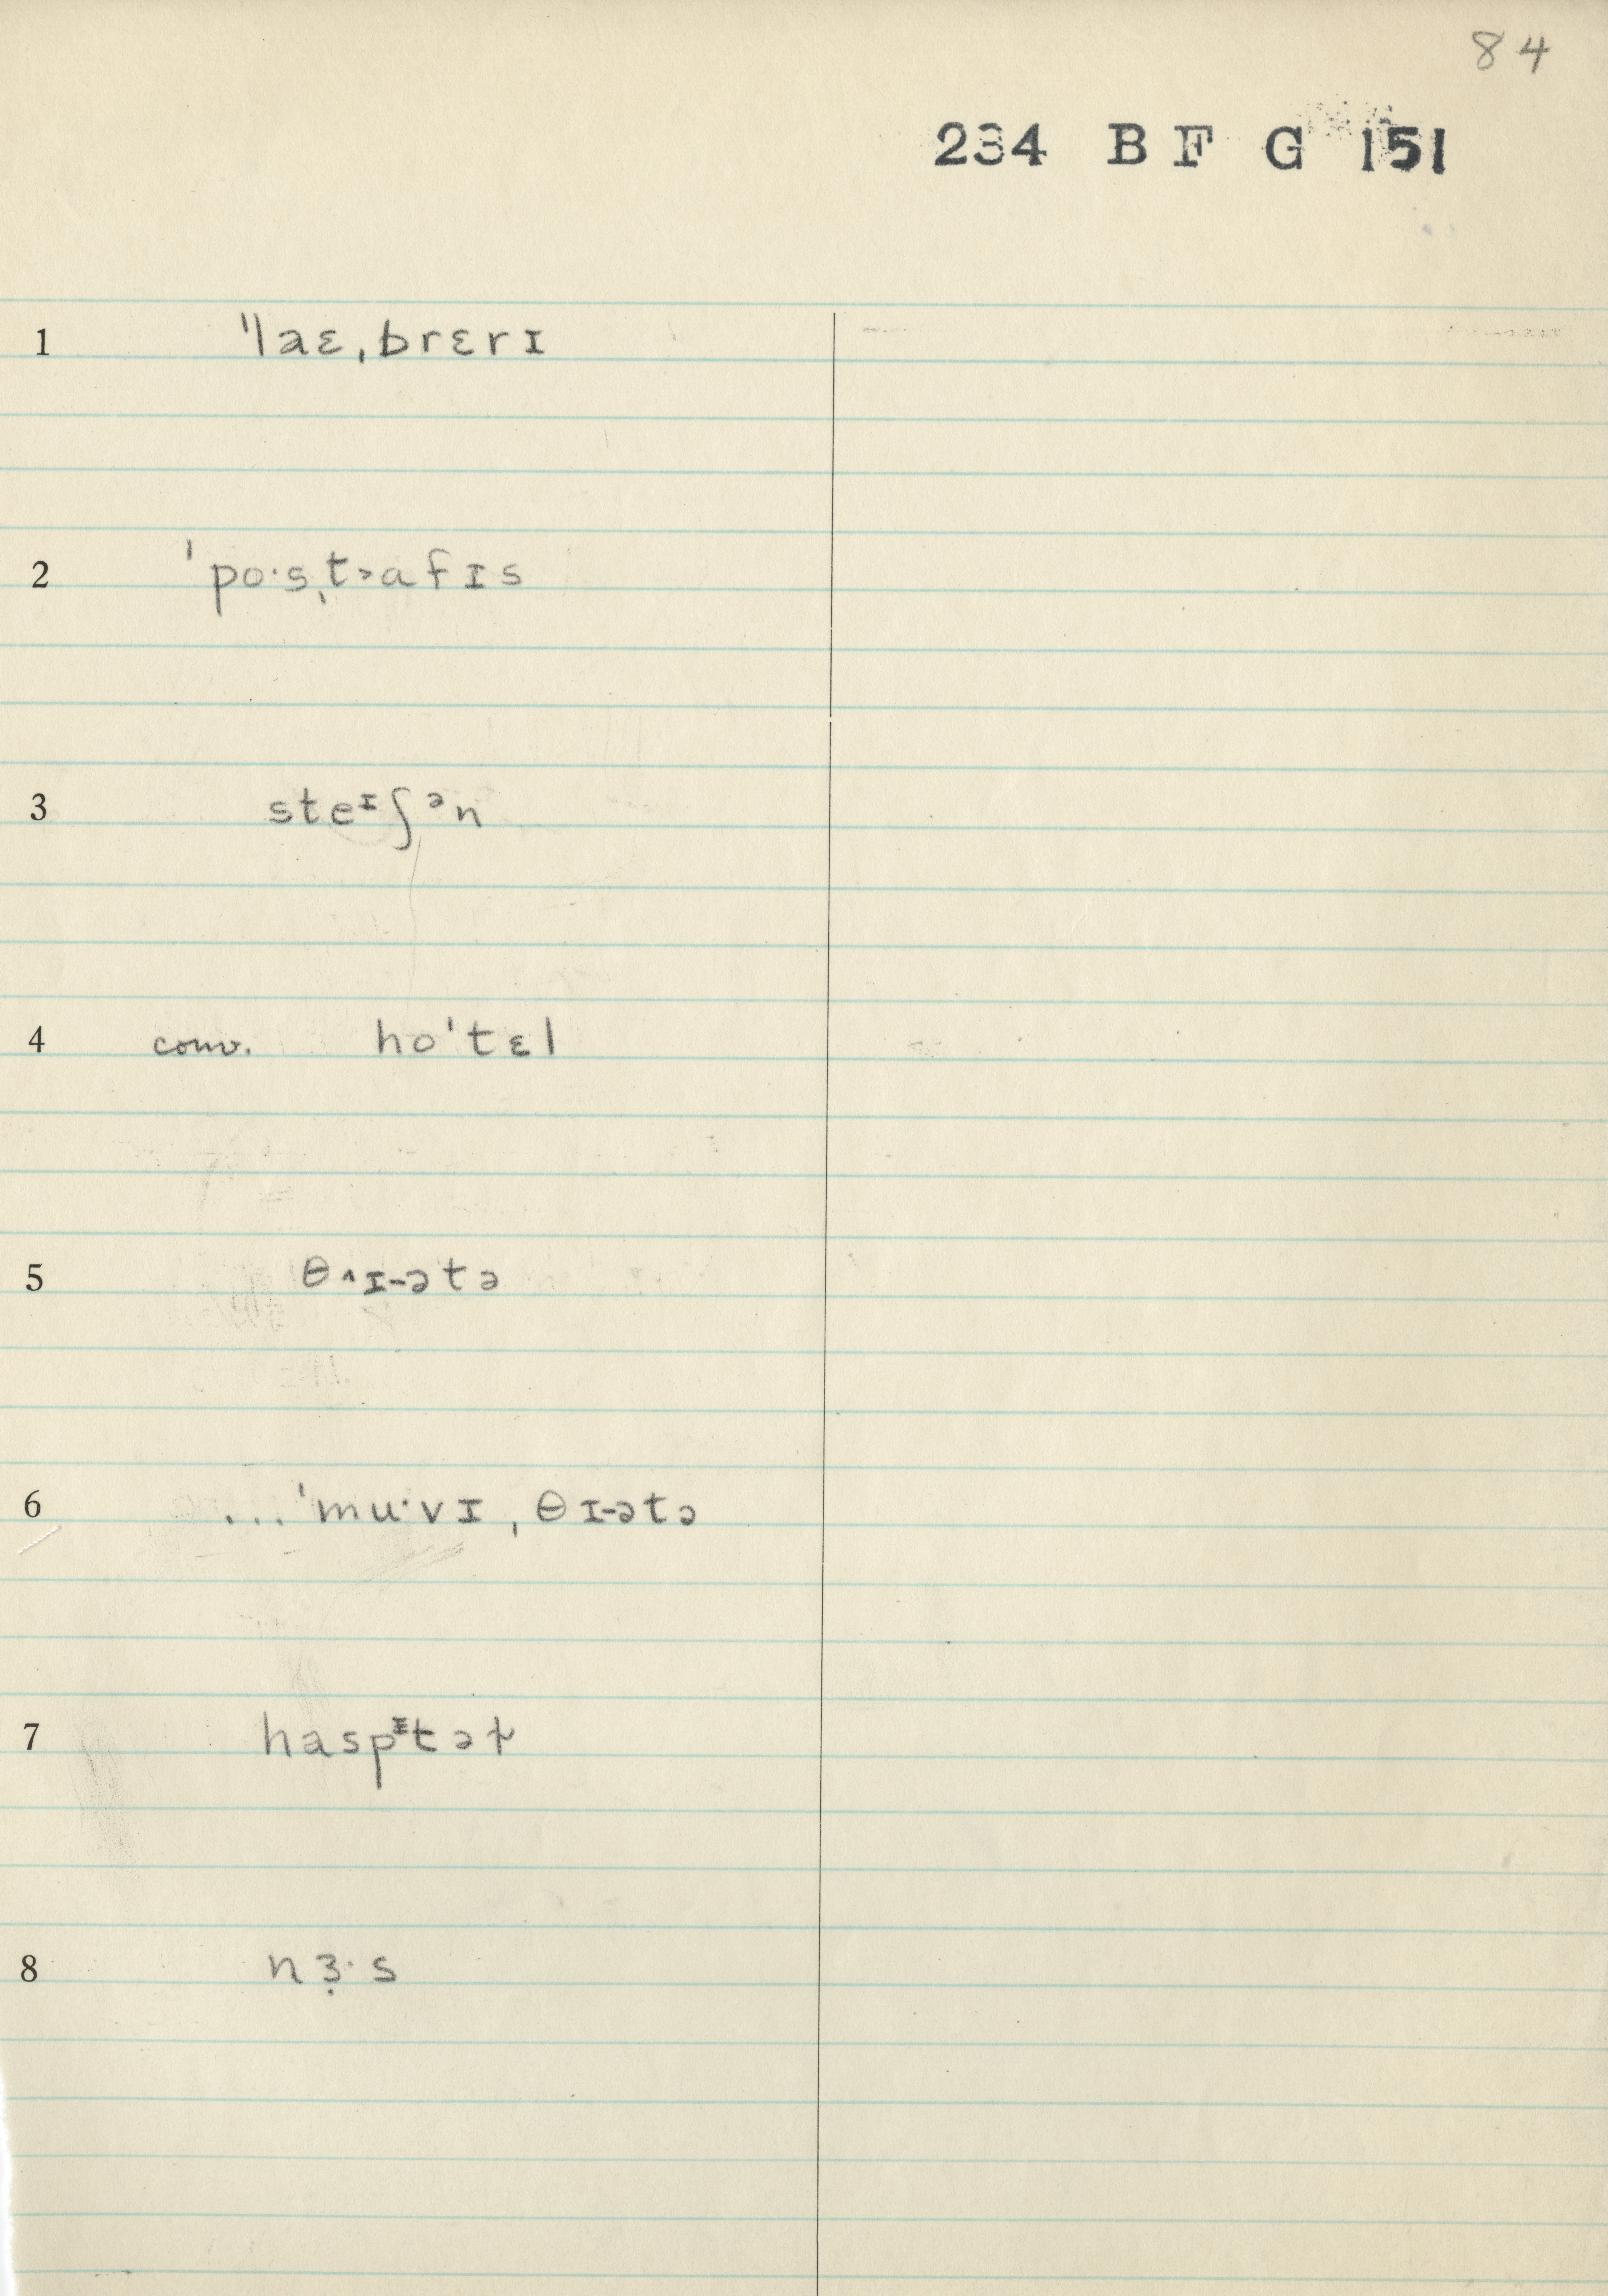 84
234 BF G 151
1 ˈlaɛˌbrɛrɪ
2 ˈpo·sˌt˃afɪs
3 steᶦʃᵊn
4 conv. hoˈtɛl
5 θ˄ɪ-ətə
6 ...ˈmu·vɪˌθɪ-ətə
7 haspᶦtəɫ
8 nɜ̣·s